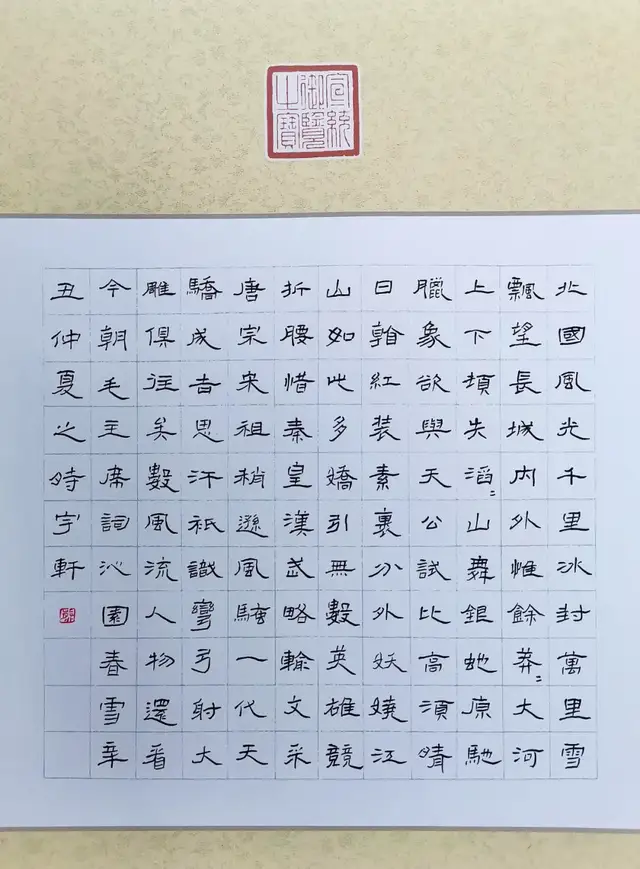 宣統
御覽
之寶
北國風光千里冰封萬里雪
飄望長城內外惟餘莽〻大河
上下頓失滔〻山舞銀蛇原馳
臘象欲與天公試比高須晴
日看紅装素裹分外妖嬈江
山如此多嬌引無數英雄競
折腰惜秦皇漢武略輸文采
唐宗宋祖稍遜風騷一代天
驕成吉思汗衹識彎弓射大
雕俱往矣數風流人物還看
今朝毛主席詞沁園春雪辛
丑仲夏之時宇軒